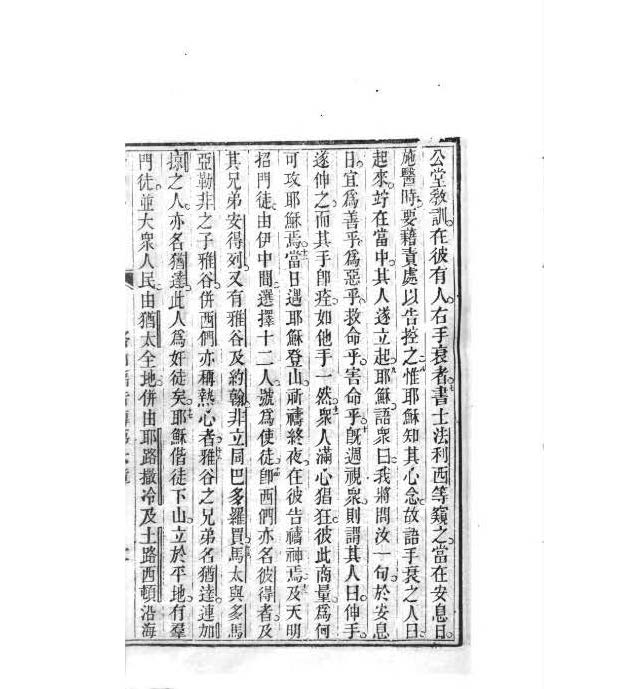 公堂教訓在彼有人右手衰者書士法利西等窺之當在安息日
施醫時要藉責處以告控之惟耶穌知其心念故語手衰之人曰
起來竚在當中其人遂立起耶穌語衆曰我將問汝一句於安息
日宜爲善乎爲惡乎救命乎害命乎旣週視衆則謂其人曰伸手
遂伸之而其手卽痊如他手一然衆人滿心猖狂彼此商量爲何
可攻耶穌焉當日遇耶穌登山祈禱終夜在彼告禱神焉及天明
招門徒由伊中間選擇十二人號爲使徒卽西們亦名彼得者及
其兄弟安得列又有雅谷及約翰非立同巴多羅買馬太與多馬
亞勒非之子雅谷併西們亦稱熱心者雅谷之兄弟名猶達連加
掠之人亦名猶達此人爲奸徒矣耶穌偕徒下山立於平地有羣
門徒並大衆人民由猶太全地併由耶路撒冷及土路西頓沿海